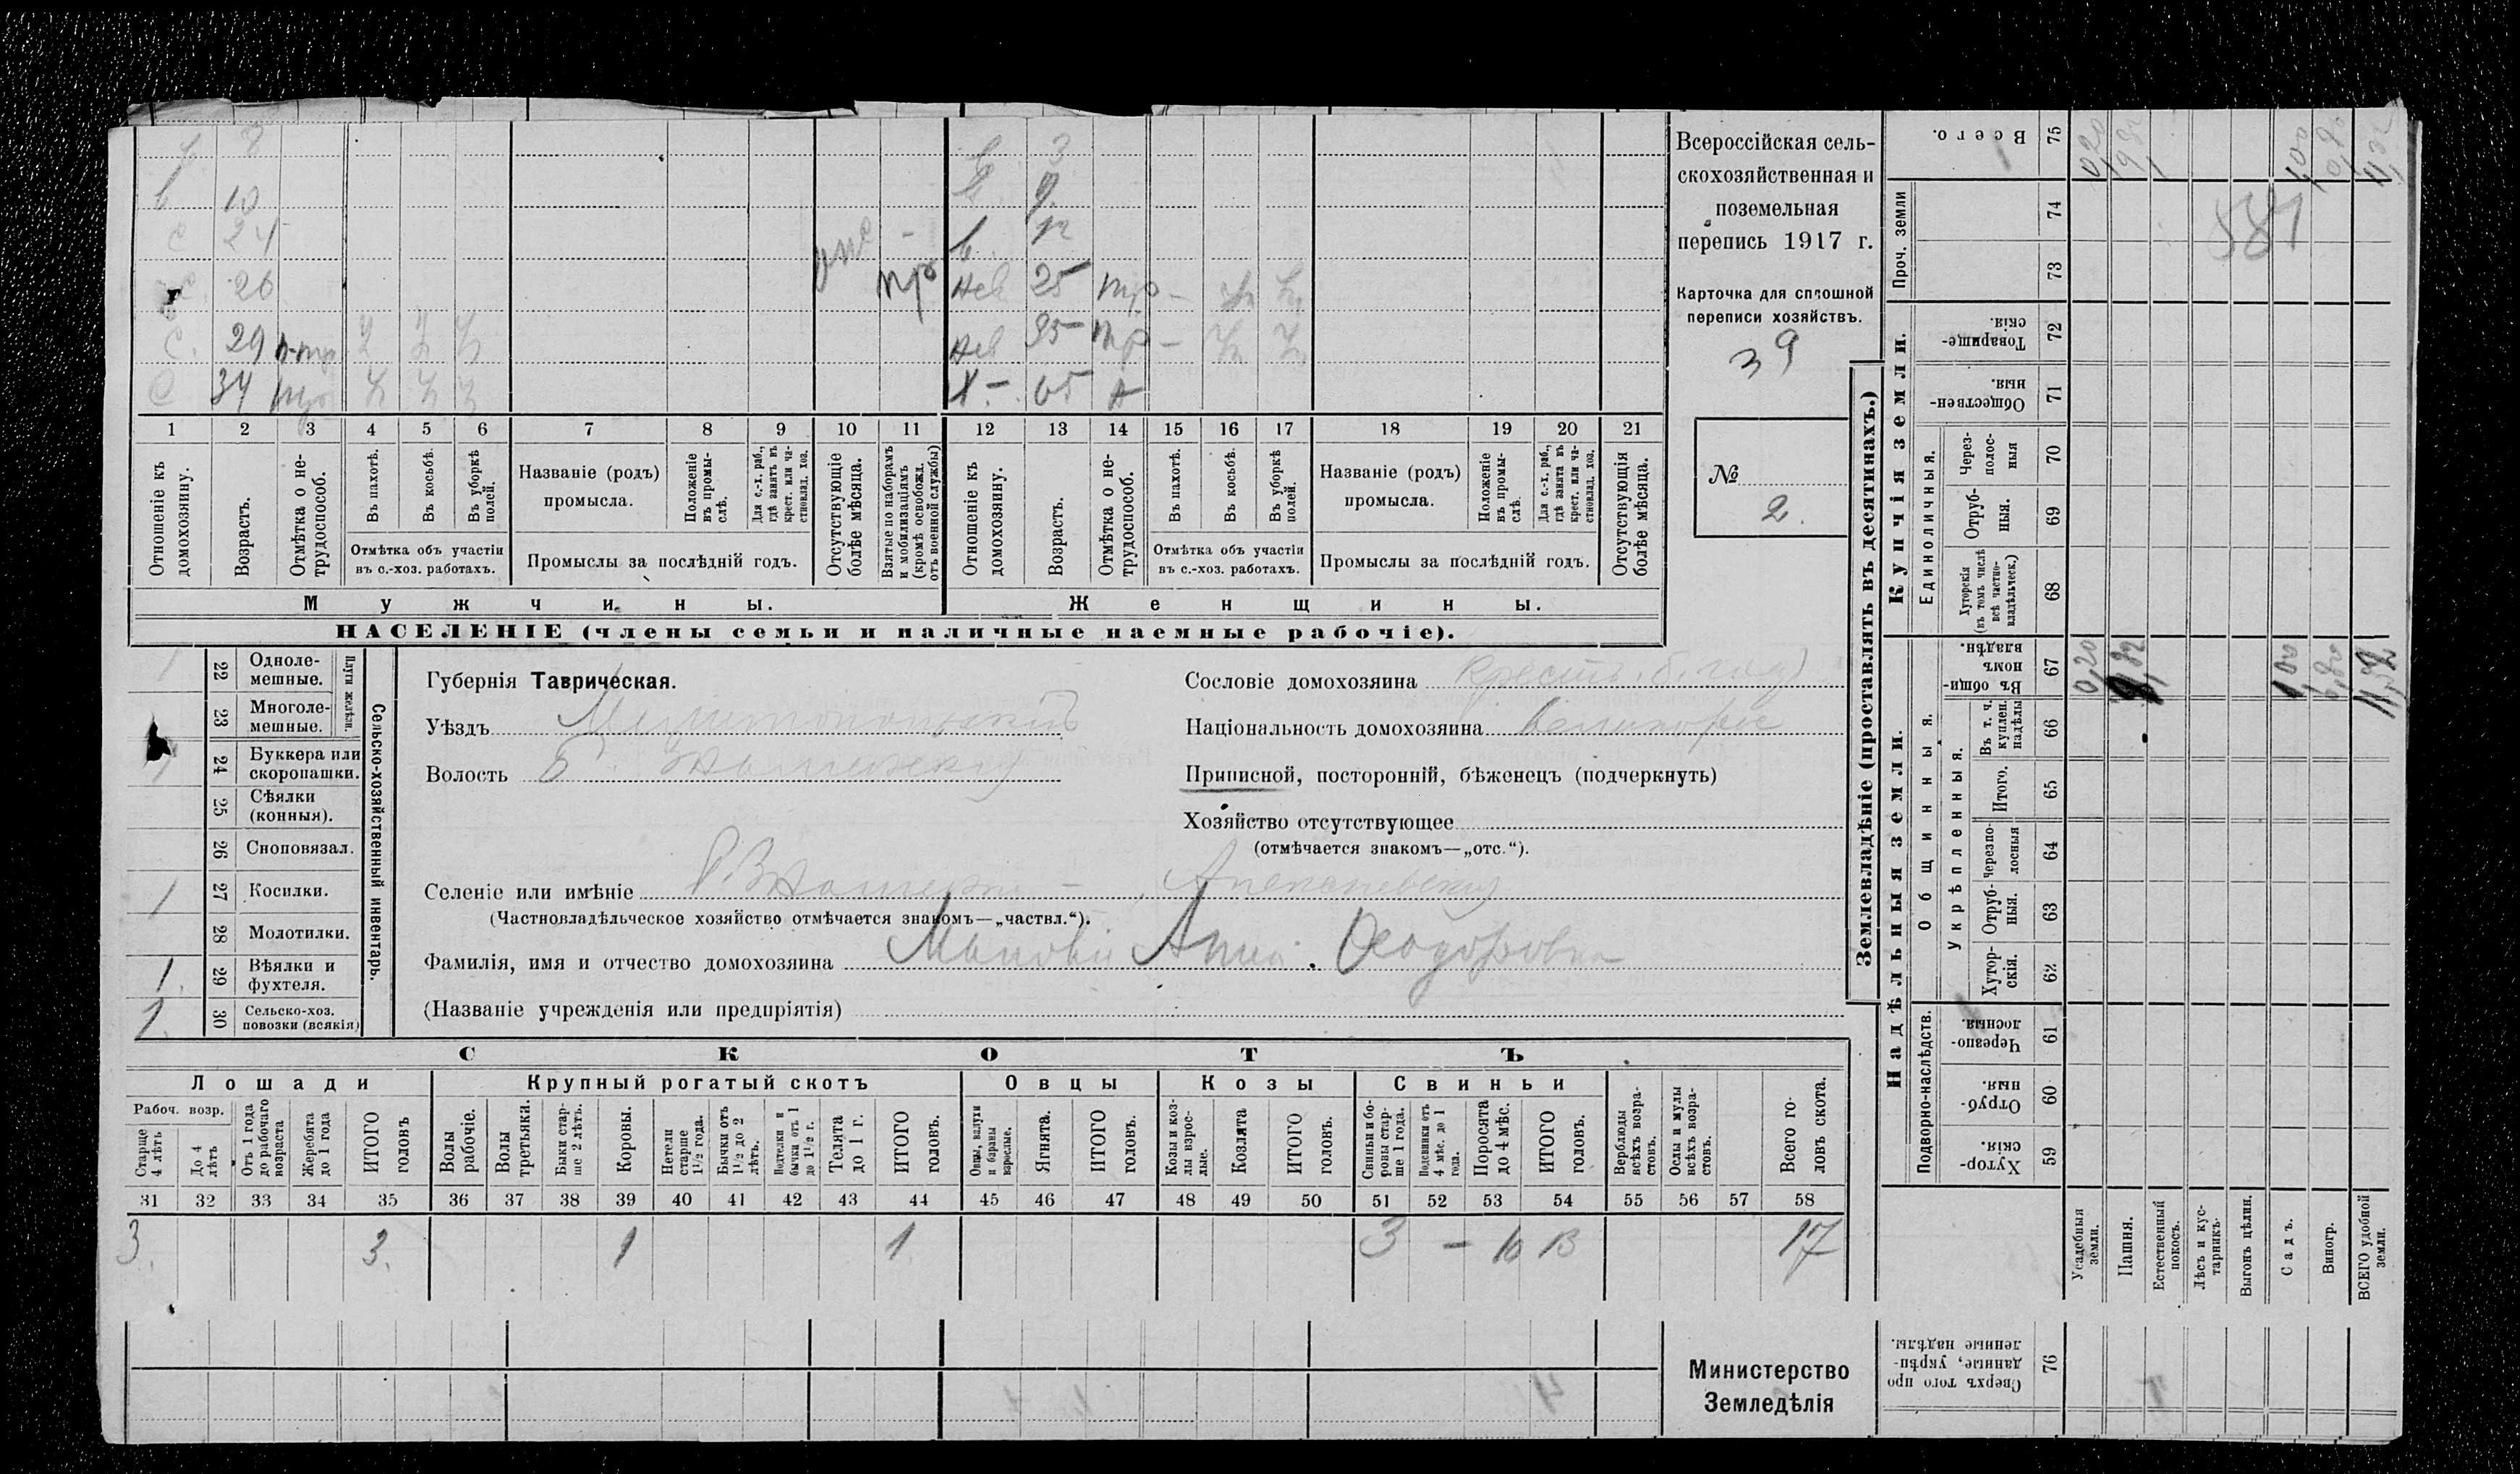 Всероссійская сель-
скохозяйственная и
поземельная
перепись 1917 г.
Карточка для сплошной
переписи хозяйствъ.
39
№
2.
10
24
26
29
34
3
9.
12
нев 25
нев 35
65
1 2 3 4 5 6 7 8 9 10 11 12 13 14 15 16 17 18 19 20 21
Отношеніе къ домохозяину.
Возрастъ.
Отмѣтка о не-
трудоспособ.
Въ пахотѣ.
Въ косьбѣ.
Въ уборкѣ полей.
Отмѣтка объ участіи
въ с.-хоз. работахъ.
Названіе (родъ)
промысла.
Положеніе въ промы-
слѣ.
Для с.-х. раб.,
гдѣ занятъ въ
крест. или ча-
стновлад. хоз.
Промыслы за послѣдній годъ.
Отсутствующіе
болѣе мѣсяца.
Взятые по наборамъ
и мобилизаціямъ
(кромѣ освобожд.
отъ военной службы)
Отношеніе къ
домохозяину.
Возрастъ.
Отмѣтка о не-
трудоспособ.
Въ пахотѣ.
Въ косьбѣ.
Въ уборкѣ
полей.
Отмѣтка объ участіи
въ с.-хоз. работахъ.
Названіе (родъ)
промысла.
Положеніе
въ промы-
слѣ.
Для с.-х. раб.,
гдѣ занятъ въ
крест. или ча-
стновлад. хоз.
Промыслы за послѣдній годъ.
Отсутствующія
болѣе мѣсяца.
Мужчины.
Женщины.
НАСЕЛЕНІЕ (члены семьи и наличные наемные рабочіе).
Сельско-хозяйственный инвентарь.
Плуги желѣзн.
22 Одноле-
мешные.
23 Многоле-
мешные.
24 Буккера или
скоропашки.
25 Сѣялки
(конныя).
26 Сноповязал.
1 27 Косилки.
28 Молотилки.
1. 29 Вѣялки и
фухтеля.
1. 30 Сельско-хоз.
повозки (всякія)
Губернія Таврическая.
Уѣздъ Мелитопольскій
Волость Б. Знаменская
Сословіе домохозяина
Національность домохозяина великорос
Приписной, посторонній, бѣженецъ (подчеркнуть)
Хозяйство отсутствующее
(отмѣчается знакомъ—„отс.“).
Селеніе или имѣніе Знаменка – Алексѣевская
(Частновладѣльческое хозяйство отмѣчается знакомъ—„частвл.“).
Фамилія, имя и отчество домохозяина Анна Ѳеодоровна
(Названіе учрежденія или предпріятія)
СКОТЪ
Лошади
Крупный рогатый скотъ
Овцы
Козы
Свиньи
Рабоч. возр.
Старше
4 лѣтъ
До 4
лѣтъ
Отъ 1 года
до рабочаго
возраста
Жеребята
до 1 года
ИТОГО
головъ
Волы
рабочіе.
Волы
третьяки.
Быки стар-
ше 2 лѣтъ.
Коровы.
Нетели
старше
1½ года.
Бычки отъ
1½ до 2
лѣтъ.
Подтелки и
бычки отъ 1
до 1½ г.
Телята
до 1 г.
ИТОГО
головъ.
Овцы, валухи
и бараны
взрослые.
Ягнята.
ИТОГО
головъ.
Козы и коз-
лы взрос-
лые.
Козлята
ИТОГО
головъ.
Свиньи и бо-
ровы стар-
ше 1 года.
Подсвинки отъ
4 мѣс. до 1
года.
Поросята
до 4 мѣс.
ИТОГО
головъ.
Верблюды
всѣхъ возра-
стовъ.
Ослы и мулы
всѣхъ возра-
стовъ.
Всего го-
ловъ скота.
31 32 33 34 35 36 37 38 39 40 41 42 43 44 45 46 47 48 49 50 51 52 53 54 55 56 57 58
3. 3. 1 1. 3 – 10 13 17
Министерство
Земледѣлія
Землевладѣніе (проставлять въ десятинахъ.)
Купчія земли.
Надѣльныя земли.
Всего. 75
Проч. земли
74
73
Товарище-
скія. 72
Обществен-
ныя. 71
Единоличныя.
Через-
полос-
ныя 70
Отруб-
ныя. 69
Хуторскія
(въ томъ числѣ
всѣ частно-
владѣльческ.) 68
Общинныя.
Въ общи-
номъ
владѣн. 67
Укрѣпленныя.
Въ т. ч.
куплен.
надѣлы 66
Итого. 65
Черезпо-
лосныя 64
Отруб-
ныя. 63
Хутор-
скія. 62
Подворно-наслѣдств.
Черезпо-
лосныя. 61
Отруб-
ныя. 60
Хутор-
скія. 59
Усадебныя
земли.
Пашня.
Естественный
покосъ.
Лѣсъ и кус-
тарникъ.
Выгонъ цѣлин.
Садъ.
Виногр.
ВСЕГО удобной
земли.
Сверхъ того про
данные, укрѣп-
ленные надѣлы. 76
0,20
9,32
1,00
581